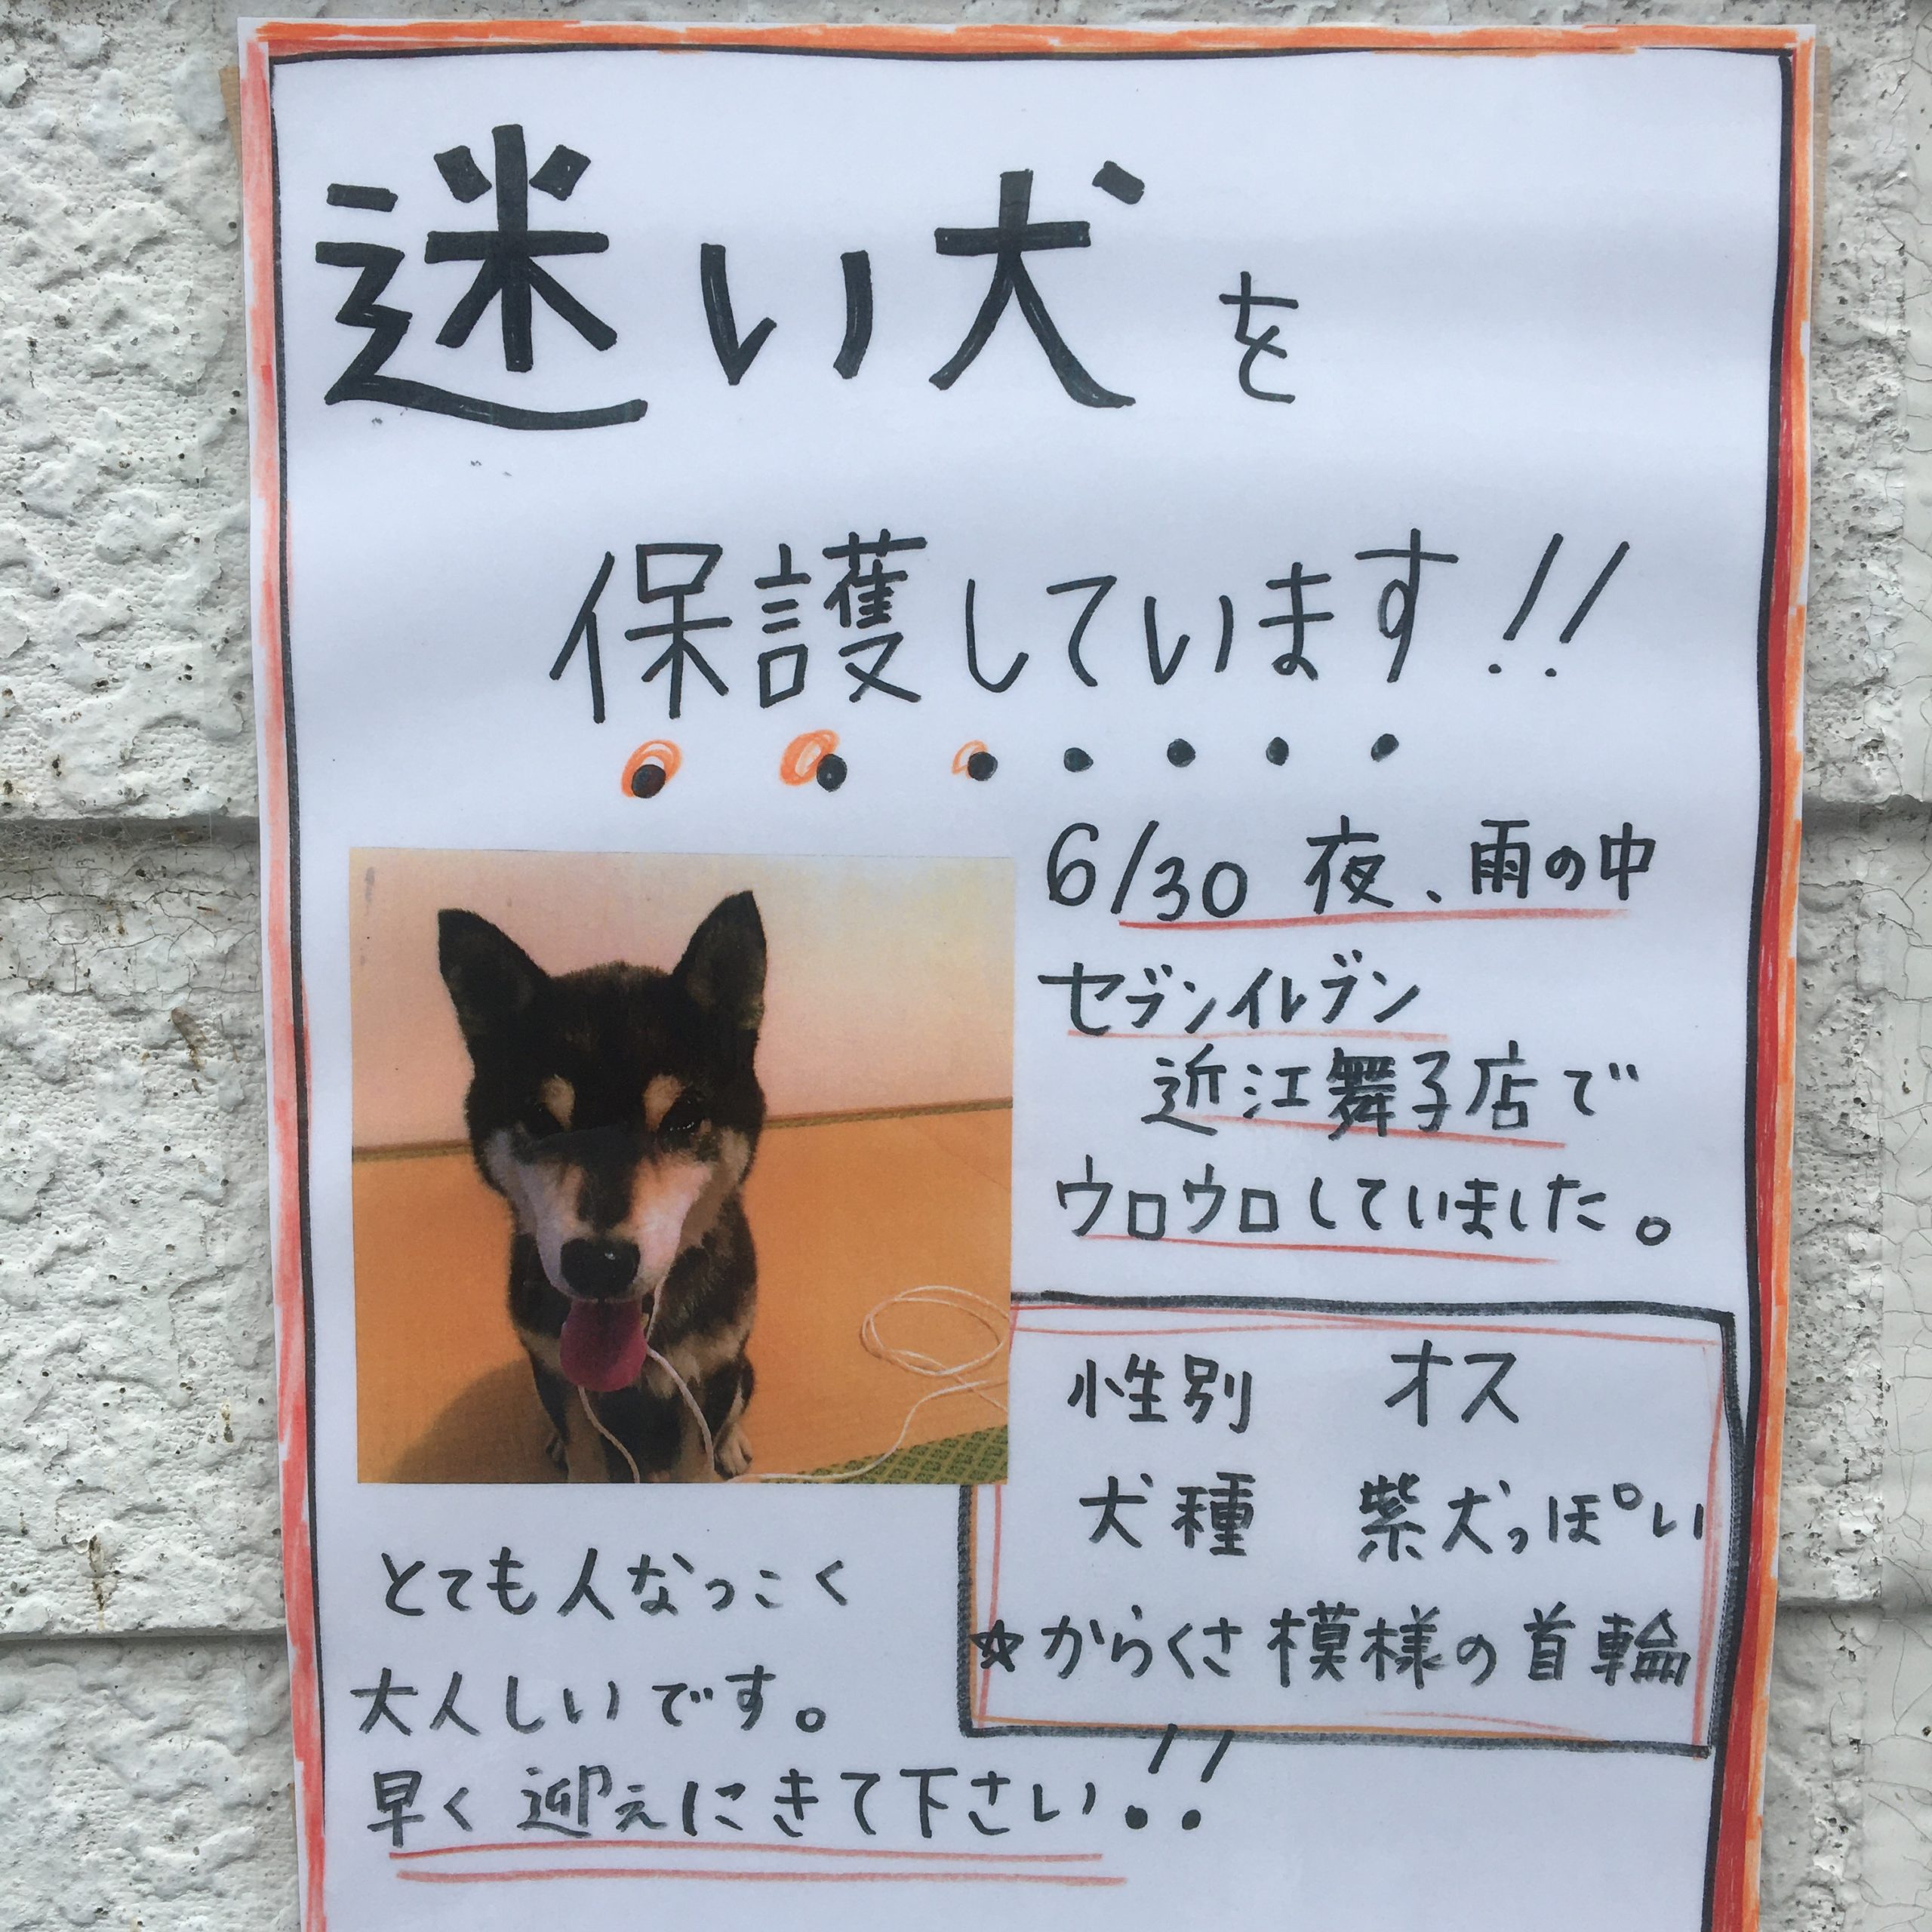 迷い犬を
保護しています!!
6/30 夜、雨の中
セブンイレブン
近江舞子店で
ウロウロしていました。
性別 オス
犬種 紫犬っぽい
☆からくさ模様の首輪
とても人なっこく
大人しいです。
早く迎えにきて下さい!!